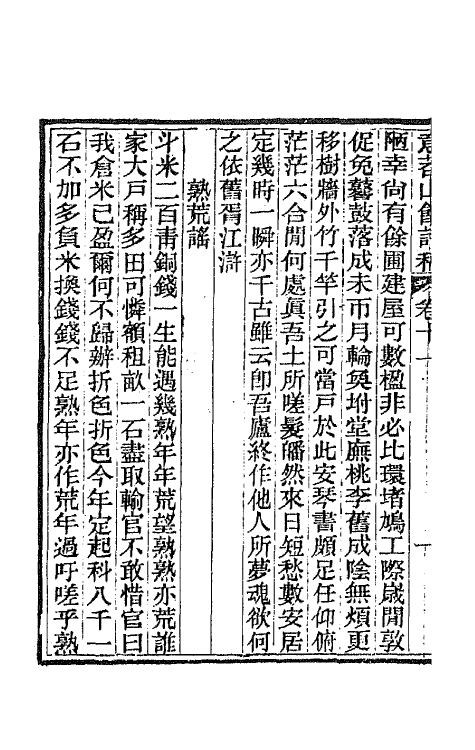 意苕山館詩稿 卷十一
陋幸尙有餘圃建屋可數楹非必比環堵鳩工際歲閒敦
促免鼛鼓落成未帀月輪奐坿堂廡桃李舊成陰無煩更
移樹牆外竹千竿引之可當戶於此安琴書頗足任仰俯
茫茫六合閒何處眞吾土所嗟髮皤然來日短愁數安居
定幾時一瞬亦千古雖云卽吾廬終作他人所夢魂欲何
之依舊胥江滸
熟荒謠
斗米二百靑銅錢一生能遇幾熟年年荒望熟熟亦荒誰
家大戶稱多田可憐額租畝一石盡取輸官不敢惜官曰
我倉米已盈爾何不歸辦折色折色今年定起科八千一
石不加多負米換錢錢不足熟年亦作荒年過吁嗟乎熟